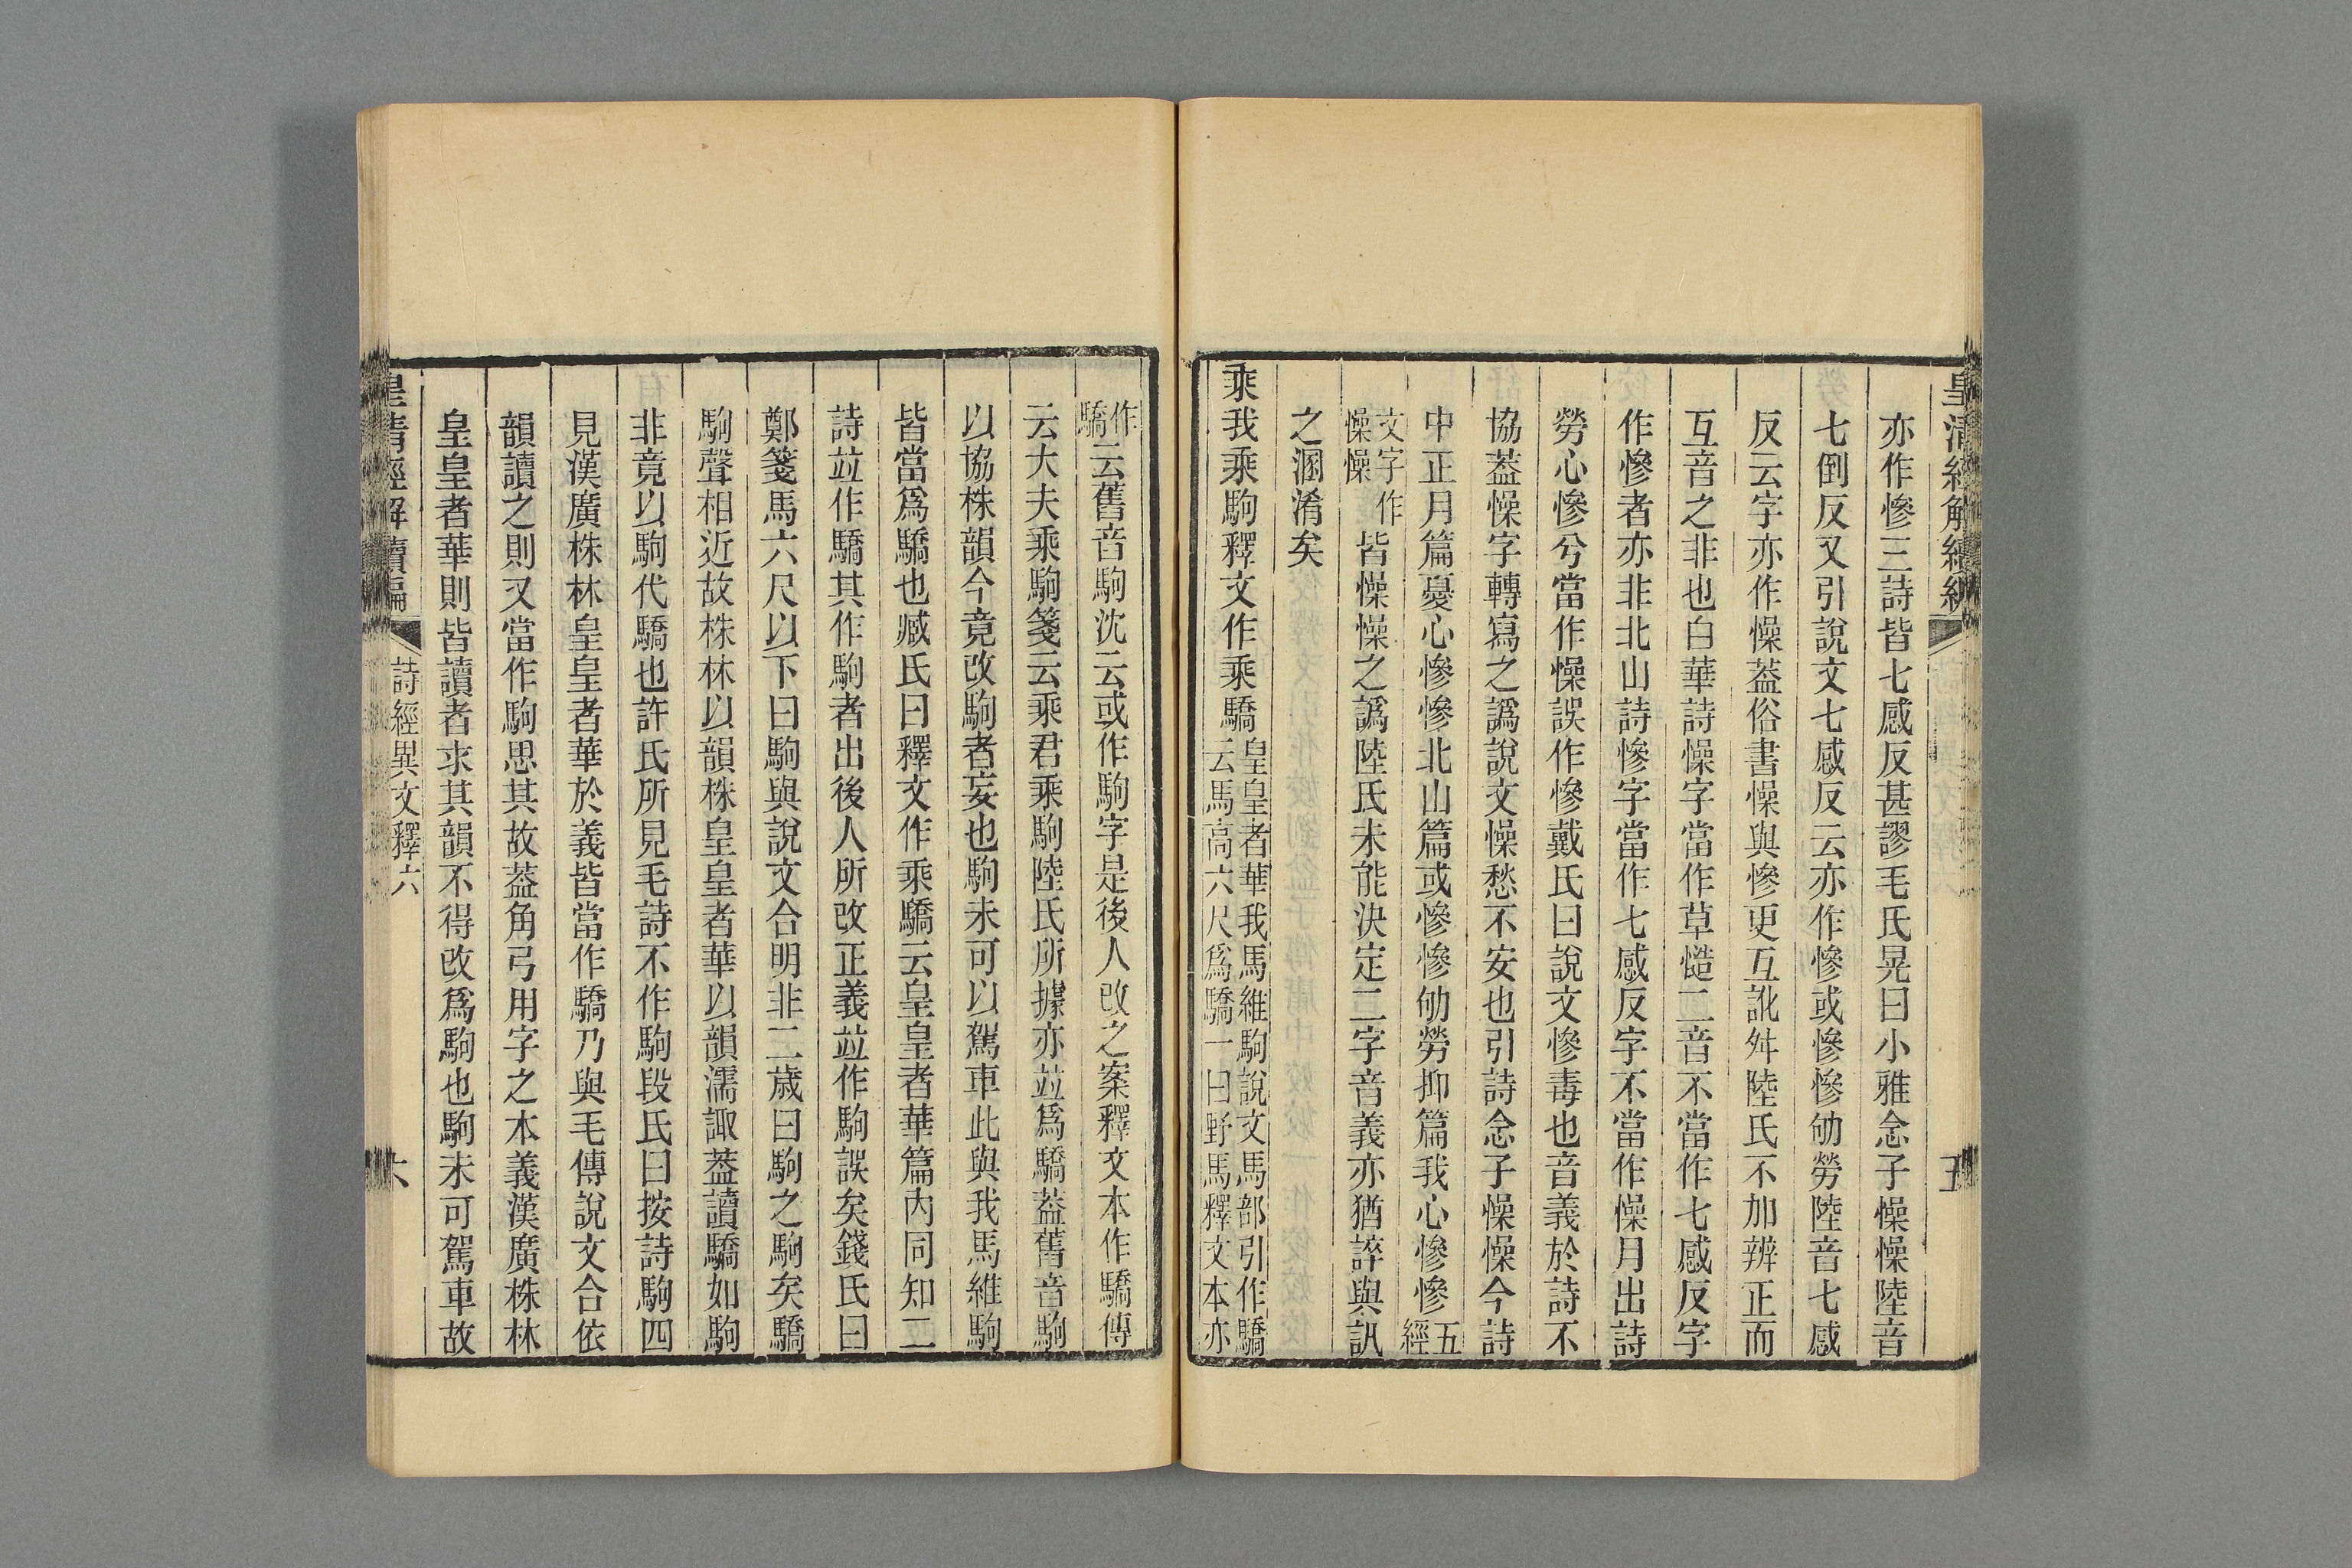 皇清經解續編
五
亦作慘三詩皆七感反甚謬毛氏晃曰小雅念子懆懆陸音
七倒反又引說文七感反云亦作慘或慘慘劬勞陸音七感
反云字亦作懆葢俗書懆與慘更互訛舛陸氏不加辨正而
互音之非也白華詩懆字當作草㥽二音不當作七感反字
作慘者亦非北山詩慘字當作七感反字不當作懆月出詩
勞心慘兮當作懆誤作慘戴氏曰說文慘毒也音義於詩不
協葢懆字轉寫之譌說文懆愁不安也引詩念子懆懆今詩
中正月篇憂心慘慘北山篇或慘慘劬勞抑篇我心慘慘五經
文字作懆懆皆懆懆之譌陸氏未能決定二字音義亦猶誶與訊
之溷淆矣
乘我乘駒釋文作乘驕皇皇者華我馬維駒說文馬部引作驕
云馬高六尺爲驕一曰野馬釋文本亦
作驕云舊音駒沈云或作駒字是後人改之案釋文本作驕傳
云大夫乘駒箋云乘君乘駒陸氏所據亦並爲驕葢舊音駒
以協株韻今竟改駒者妄也駒未可以駕車此與我馬維駒
皆當爲驕也臧氏曰釋文作乘驕云皇皇者華篇內同知二
詩並作驕其作駒者出後人所改正義並作駒誤矣錢氏曰
鄭箋馬六尺以下曰駒與說文合明非二歲曰駒之駒矣驕
駒聲相近故株林以韻株皇皇者華以韻濡諏葢讀驕如駒
非竟以駒代驕也許氏所見毛詩不作駒段氏曰按詩駒四
見漢廣株林皇皇者華於義皆當作驕乃與毛傳說文合依
韻讀之則又當作駒思其故葢角弓用字之本義漢廣株林
皇皇者華則皆讀者求其韻不得改爲駒也駒未可駕車故
皇清經解續編
詩經異文釋六
六